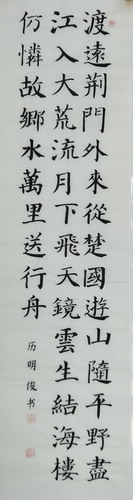 渡遠荊門外來從楚國遊山隨平野盡
江入大荒流月下飛天鏡雲生結海樓
仍憐故鄉水萬里送行舟
历明俊书